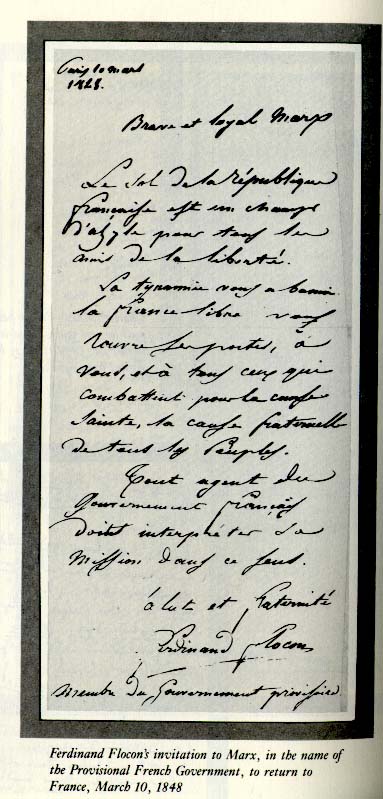 Paris 10 mars
1848.
Brave et loyal Marx
Le sol de la République
française est un champ
d'asyle pour tous les
amis de la liberté.
La tyrannie vous a banni
la France libre vous
rouvre ses portes, à
vous, et à tous ceux qui
combattent pour la cause
sainte, la cause fraternelle
de tous les Peuples.
Tout agent du
Gouvernement français
doit interpréter sa
mission dans ce sens.
Salut et fraternité
Ferdinand Flocon
Membre du Gouvernement provisoire.
Ferdinand Flocon's invitation to Marx, in the name of
the Provisional French Government, to return to
France, March 10, 1848